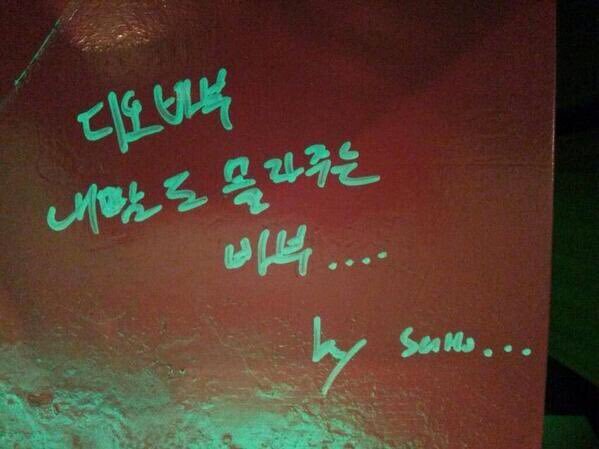 디오바부
내맘도 몰라주는
바부....
by SuHo...